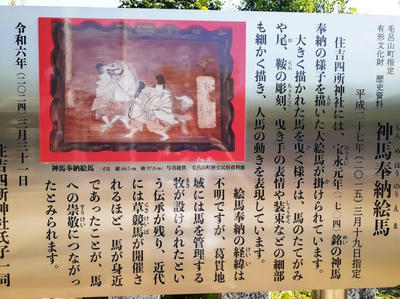 毛呂山町指定
有形文化財 歴史資料
神馬奉納絵馬
しんめほうのうえま
平成二十七年(二〇一五)三月十九日指定
住吉四所神社には、宝永元年(一七〇四)銘の神馬
奉納の様子を描いた大絵馬が掛けられています。
大きく描かれた馬を曳く様子は、馬のたてがみ
や尾、鞍の彫刻、曳き手の表情や装束などの細部
も細かく描き、人馬の動きを表現しています。
神馬奉納絵馬
写真提供 毛呂山町歴史民俗資料館
絵馬奉納の経緯は
不明ですが、葛貫地
域には馬を管理する
牧が設けられたとい
う伝承が残り、近代
には草競馬が開催さ
れるほど、馬が身近
であったことが、馬
への崇敬につながっ
たとみられます。
令和六年(二〇二四)三月三十一日
住吉四所神社氏子一同